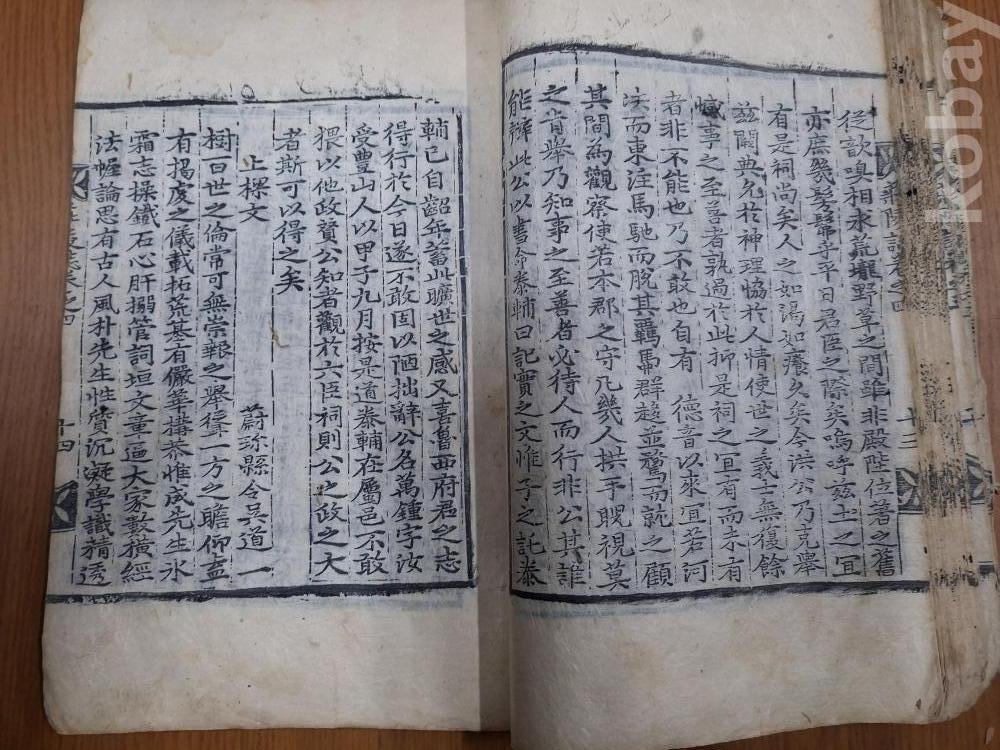 從歆嗅相求荒壠野草之間雖非殿陛位著之舊
亦庶幾髣髴乎平日君臣之際矣嗚呼玆土之宜
有是祠尚矣人之如渴如癢久矣今洪公乃克舉
玆闕典允於神理恊於人情使世之義士無復餘
憾事之至善者孰過於此抑是祠之宜有而未有
者非不能也乃不敢也自有 德音以來宜若河
决而東注馬馳而脫其羈馽群趍並騖而就之顧
其間為觀察使若本郡之守凡幾人拱手睨視莫
之肯舉乃知事之至善者必待人而行非公其誰
能辦此公以書命泰輔曰記實之文惟子之託泰
輔已自齠年蓄此曠世之感又喜魯西府君之志
得行於今日遂不敢固以陋拙辭公名萬鍾字汝
受豊山人以甲子九月按是道泰輔在屬邑不敢
猥以他政贊公知者觀於六臣祠則公之政之大
者斯可以得之矣
上樑文 蔚珍縣令吳道一
樹百世之倫常可無崇報之舉聳一方之瞻仰盍
有揭虔之儀載拓荒基有儼華構恭惟成先生氷
霜志操鐵石心肝搦管詞垣文章逼大家數橫經
法幄論思有古人風朴先生性質沉凝學識精透
卷之四
十三
十四
kobay